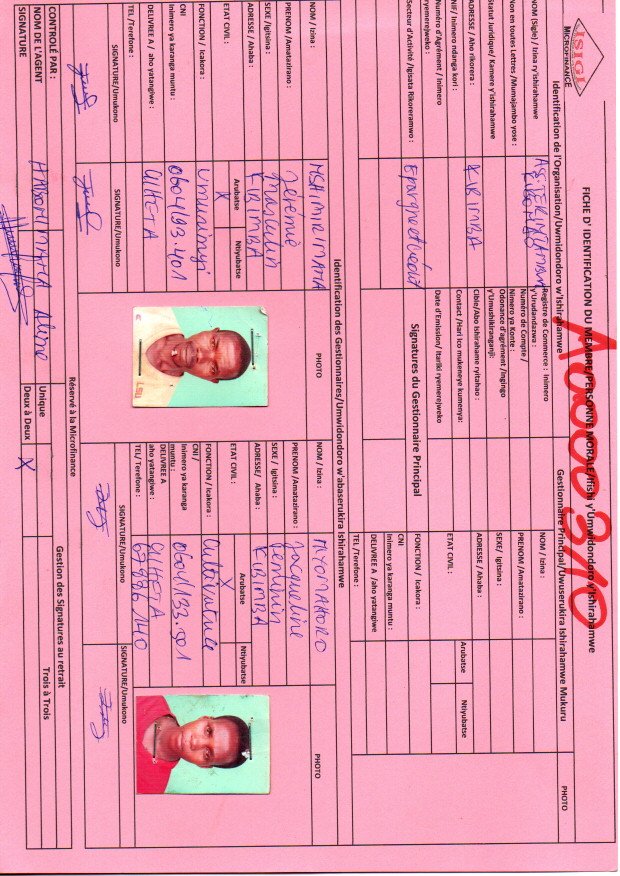 ISIGL
MICROFINANCE
FICHE D' IDENTIFICATION DU MEMBRE/PERSONNE MORALE/Ifishi y'Umwidondoro y'Ishirahamwe
10000310
Identification de l'Organisation/Uwmidondoro w'Ishirahamwe
Gestionnaire Principal/Uwuserukira Ishirahamwe Mukuru
NOM (Sigle) / Izina ry'ishirahamwe
Non en toutes Lettres /Mumajambo yose :
Statut Juridique/ Kamere y'ishirahamwe
ADRESSE / Aho rikorera :
KIRIMBA
NIF/ Inimero ndanga kori :
Numéro d'Agrément / Inimero
ryemerejweko :
Secteur d'Activité /Igisata Rikoreramwo :
Epargne et crédit
Registre de Commerce : Inimero
y'Urudandazwa :
Numero de Compte /
Nimero ya Konte :
Odonance d'agrément /Ingingo
y'Umushikiranganji:
Cible/Abo Ishirahame ryitaho :
Contact /Hari ico mukeneye kumenya:
Date d'Emission/ Itariki ryemerejweko
Signatures du Gestionnaire Principal
NOM / Izina :
PRENOM /Amatazirano :
SEXE/ Igitsina :
ADRESSE / Ahaba :
ETAT CIVIL :
Arubatse
Ntiyubatse
FONCTION / Icakora :
CNI
Inimero ya karanga muntu :
DELIVREE A /aho yatangiwe
TEL /Terefone :
PHOTO
Identification des Gestionnaires/Umwidondoro w'abaserukira Ishirahamwe
NOM / Izina :
NSHIMIRIMANA
PHOTO
PRENOM /Amatazirano :
Jérémie
SEXE /Igitsina :
Masculin
ADRESSE / Ahaba :
KIRIMBA
ETAT CIVIL :
Arubatse
Ntiyubatse
X
FONCTION / Icakora :
Umucungyi
CNI
Inimero ya karanga muntu :
0604/93.401
DELIVREE A / aho yatangiwe :
GIHETA
TEL /Terefone :
SIGNATURE/Umukono
SIGNATURE/Umukono
NOM / Izina :
NIYONKORO
PHOTO
PRENOM /Amatazirano :
Jacqueline
SEXE / Igitsina :
Feminin
ADRESSE/ Ahaba :
KIRIMBA
ETAT CIVIL :
Arubatse
Ntiyubatse
X
FONCTION / Icakora :
Cultivatrice
CNI /
Inimero ya karanga
muntu :
0604/133.901
DELIVREE A
aho yatangiwe :
GIHETA
TEL/ Terefone :
SIGNATURE/Umukono
SIGNATURE/Umukono
Réservé à la Microfinance
CONTROLÉ PAR :
NOM DE L'AGENT
SIGNATURE
Gestion des Signatures au retrait
Unique
Deux à Deux
X
Trois à Trois